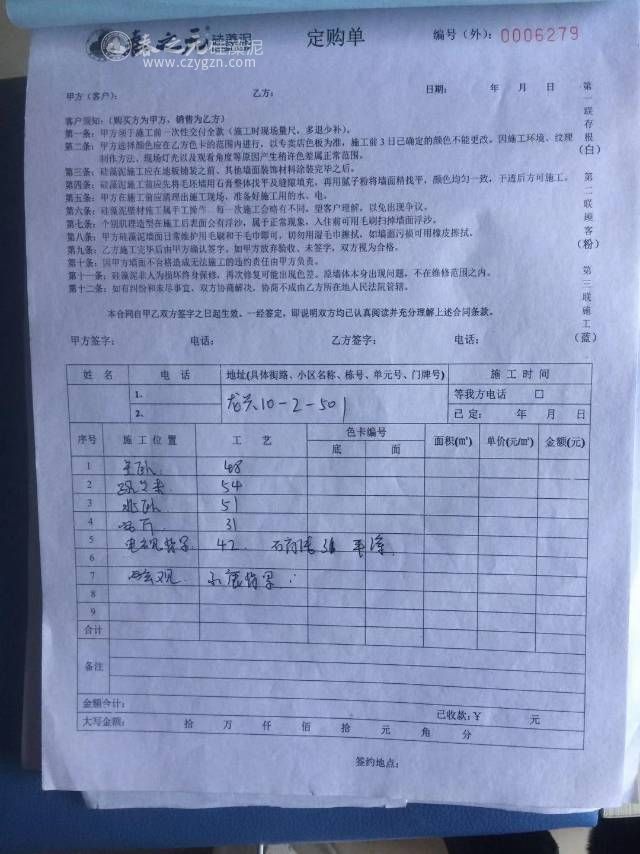 春之元硅藻泥 定购单 编号（外）：0006279
www.czygzn.com
甲方（客户）： 乙方： 日期： 年 月 日
客户须知：（购买方为甲方，销售为乙方）
第一条：甲方须于施工前一次性交付全款（施工时现场量尺，多退少补）。
第二条：甲方选择颜色应在乙方色卡的范围内进行，以专卖店色板为准，施工前3日已确定的颜色不能更改。因施工环境、纹理
制作方法、现场灯光以及观看角度等原因产生稍许色差属正常范围。
第三条：硅藻泥施工应在地板铺装之前，其他墙面装饰材料涂装完毕之后。
第四条：硅藻泥施工前应先将毛坯墙用石膏整体找平及缝隙填充，再用腻子粉将墙面精找平，颜色均匀一致，干透后方可施工。
第五条：甲方在施工前应清理出施工现场，准备好施工用的水、电。
第六条：硅藻泥壁材施工属手工操作，每一次施工会略有不同，望客户理解，以免出现争议。
第七条：个别肌理造型在施工后表面会有浮沙，属于正常现象，入住前可用毛刷扫掉墙面浮沙。
第八条：甲方硅藻泥墙面日常维护用毛刷和干毛巾即可，切勿用湿毛巾擦拭，如墙面污损可用橡皮擦拭。
第九条：乙方施工完毕后由甲方确认签字，如甲方放弃验收、未签字，双方视为合格。
第十条：因甲方墙面不合格造成的责任由甲方负责。
第十一条：硅藻泥非人为损坏终身保修，再次修复可能出现色差。原墙体本身出现问题，不在维修范围之内。
第十二条：如有纠纷和未尽事宜，双方协商解决，协商不成由乙方所在地人民法院管辖。
本合同自甲乙双方签字之日起生效。一经签定，即说明双方均已认真阅读并充分理解上述合同条款。
甲方签字： 电话： 乙方签字： 电话：
第一联存根（白） 第二联顾客（粉） 第三联施工（蓝）
姓 名 电 话 地址（具体街路、小区名称、栋号、单元号、门牌号） 施 工 时 间
1. 10-2-501 等我方电话 □
2. 已定： 年 月 日
序号 施工位置 工 艺 色卡编号 面积(㎡) 单价(元/㎡) 金额(元)
底 面
1 主卧 48
2 54
3 北卧 51
4 31
5 电视背景 42
6
7 背景
8
9
合计
备注
金额合计： 已收款：¥ 元
大写金额： 拾 万 仟 佰 拾 元 角 分
签约地点：